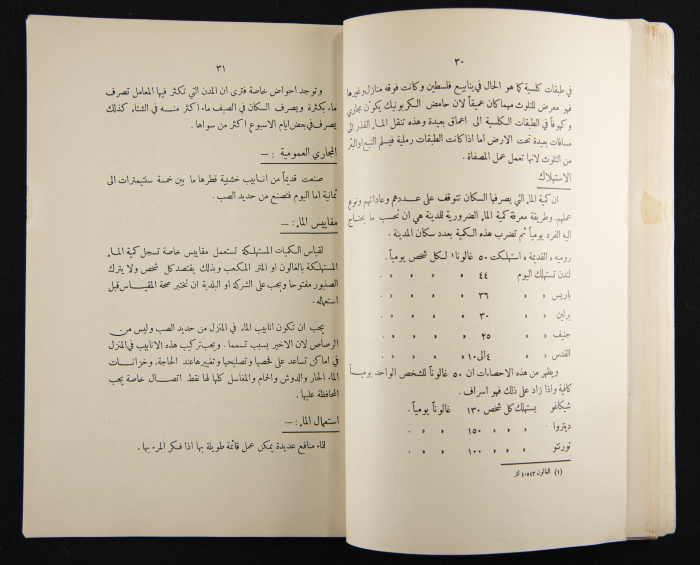 ٣٠
في طبقات كلسية كما هو الحال في ينابيع فلسطين وكانت فوقه منازل وغيرها
فهو معرض للتلوث مهما كان عميقاً لان حامض الكربونيك يكوّن مجاري
وكهوفاً في الطبقات الكلسية الى اعماق بعيدة وهذه تنقل الماء القذر الى
مسافات بعيدة تحت الارض اما اذا كانت الطبقات رملية فيسلم النبع او البئر
من التلوث لانها تعمل عمل المصفاة .
الاستهلاك
ان كمية الماء التي يصرفها السكان تتوقف على عددهم وعاداتهم ونوع
عملهم. وطريقة معرفة كمية الماء الضرورية للمدينة هي ان تحسب ما يحتاج
اليه الفرد يومياً ثم تضرب هذه الكمية بعدد سكان المدينة .
روميه « القديمة » استهلكت ٥٠ غالونا١ لكل شخص يومياً.
لندن تستهلك اليوم ٤٤ » » » » .
باريس » » ٣٦ » » » » .
برلين » » ٣٠ » » » » .
جنيف » » ٢٥ » » » » .
القدس » » ٤ الى ١٠ » » » » .
ويظهر من هذه الاحصاءات ان ٥٠ غالوناً للشخص الواحد يومياً
كافية واذا زاد على ذلك فهو اسراف .
شيكاغو يستهلك كل شخص ١٣٠ غالوناً يومياً .
ديتروا » » » ١٥٠ » » .
تورنتو » » » ١٠٠ » » .
(١) الغالون ٤٠٥٤٣ لتر
٣١
وتوجد احواض خاصة فترى ان المدن التي تكثر فيها المعامل تصرف
ماء بكثرة ويصرف السكان في الصيف ماء اكثر منه في الشتاء كذلك
يصرف في بعض ايام الاسبوع اكثر من سواها .
المجاري العمومية : —
صنعت قديماً من انابيب خشبية قطرها ما بين خمسة سنتيمترات الى
ثمانية اما اليوم فتصنع من حديد الصب .
مقاييس الماء : —
لقياس الكميات المستهلكة تستعمل مقاييس خاصة تسجل كمية الماء
المستهلكة بالغالون او المتر المكعب وبذلك يقتصد كل شخص ولا يترك
الصنبور مفتوحا ويجب على الشركة او البلدية ان تختبر صحة المقياس قبل
استعماله .
يجب ان تكون انابيب الماء في المنزل من حديد الصب وليس من
الرصاص لان الاخير يسبب تسمما . ويجب تركيب هذه الانابيب في المنزل
في اماكن تساعد على فحصها وتصليحها وتغييرها عند الحاجة، وخزانات
الماء الحار والدوش والحمام والمغاسل كلها لها نقط اتصال خاصة يجب
المحافظة عليها .
استعمال الماء : —
للماء منافع عديدة يمكن عمل قائمة طويلة بها اذا فكر المرء بها .